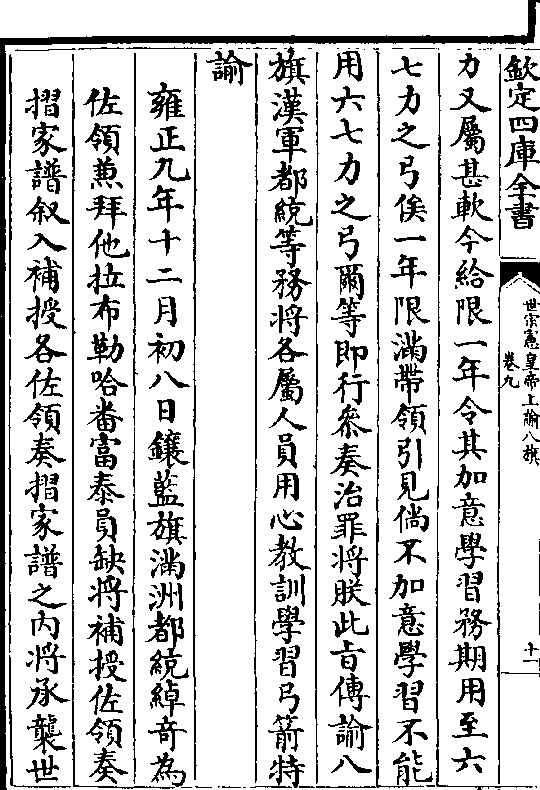 欽定四庫全書
世宗憲皇帝上諭八旗
卷九
十一
力又屬甚軟今給限一年令其加意學習務期用至六
七力之弓俟一年限滿帶領引見倘不加意學習不能
用六七力之弓爾等即行叅奏治罪將朕此㫖傳諭八
旗漢軍都統等務將各屬人員用心教訓學習弓箭特
諭
雍正九年十二月初八日鑲藍旗滿洲都統綽竒為
佐領兼拜他拉布勒哈畨富泰員缺將補授佐領奏
摺家譜叙入補授各佐領奏摺家譜之内將承襲世